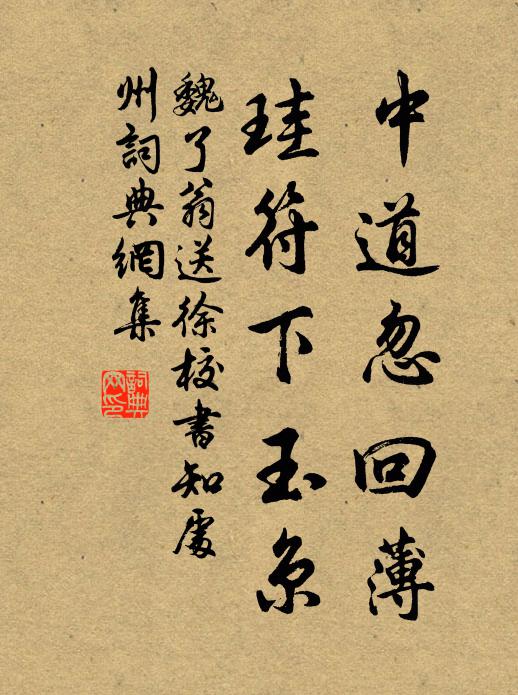 中道忽回薄
珪符下玉京
魏了翁送徐校書知處
州詞典網集
詞典
网印